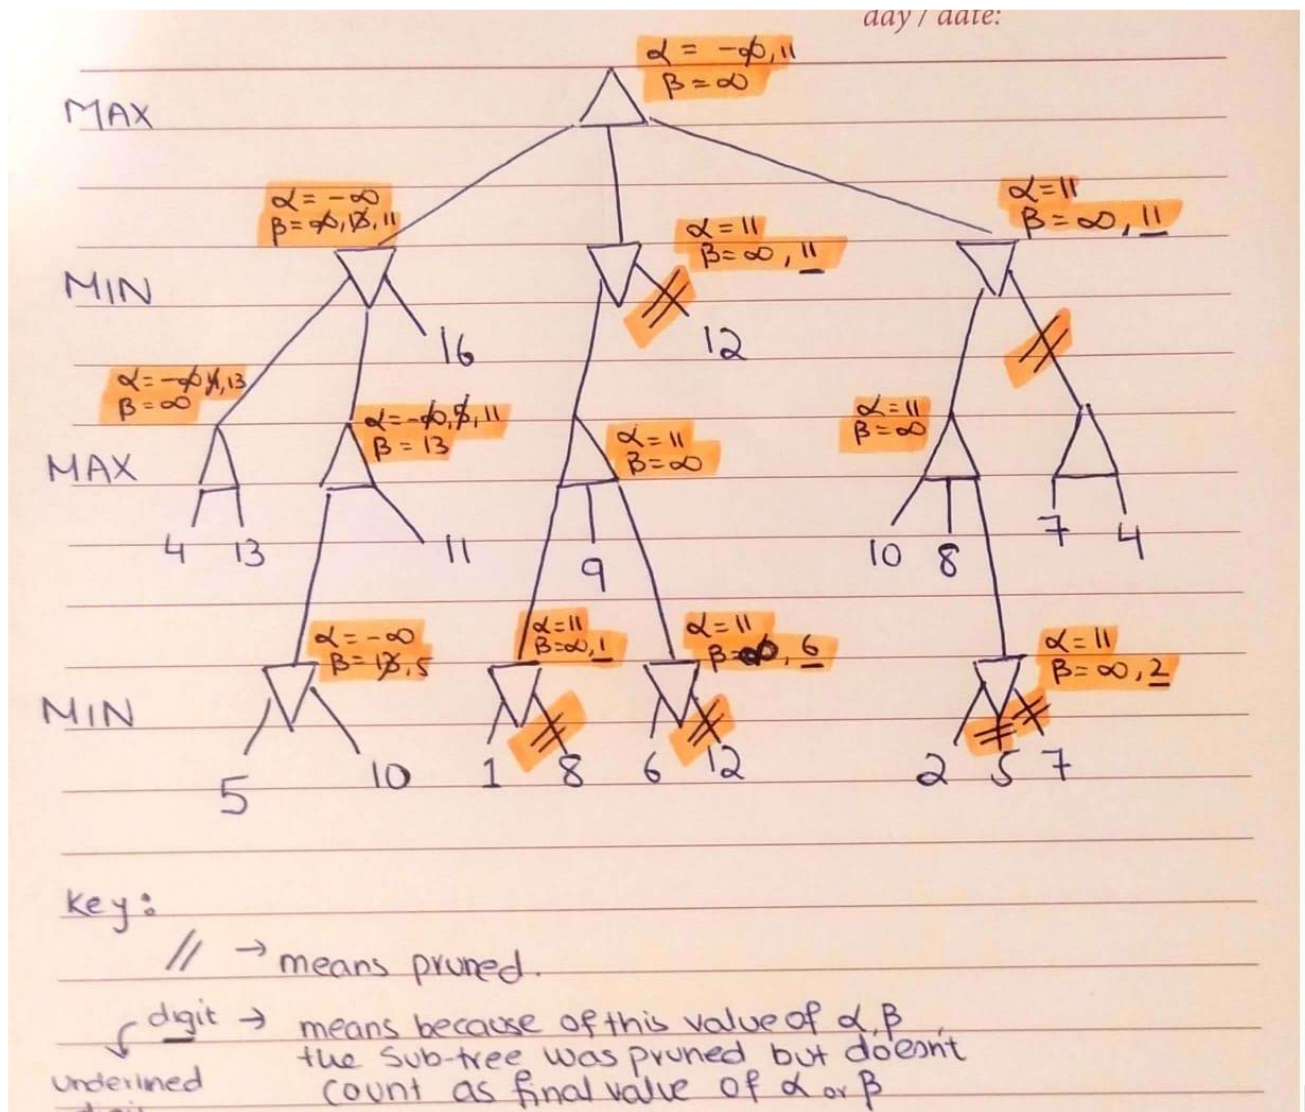 day / date:
α = -∞, 11
β = ∞
MAX
α = -∞
β = ∞, 13, 11
α = 11
β = ∞, 11
α = 11
β = ∞, 11
MIN
16
12
α = -∞, 4, 13
β = ∞
α = -∞, 5, 11
β = 13
α = 11
β = ∞
α = 11
β = ∞
MAX
4 13
11
9
10 8
7 4
α = -∞
β = 13, 5
α = 11
β = ∞, 1
α = 11
β = ∞, 6
α = 11
β = ∞, 2
MIN
5 10 1 8 6 12 2 5 7
Key:
// → means pruned.
digit → means because of this value of α, β,
the sub-tree was pruned but doesn't
underlined count as final value of α or β